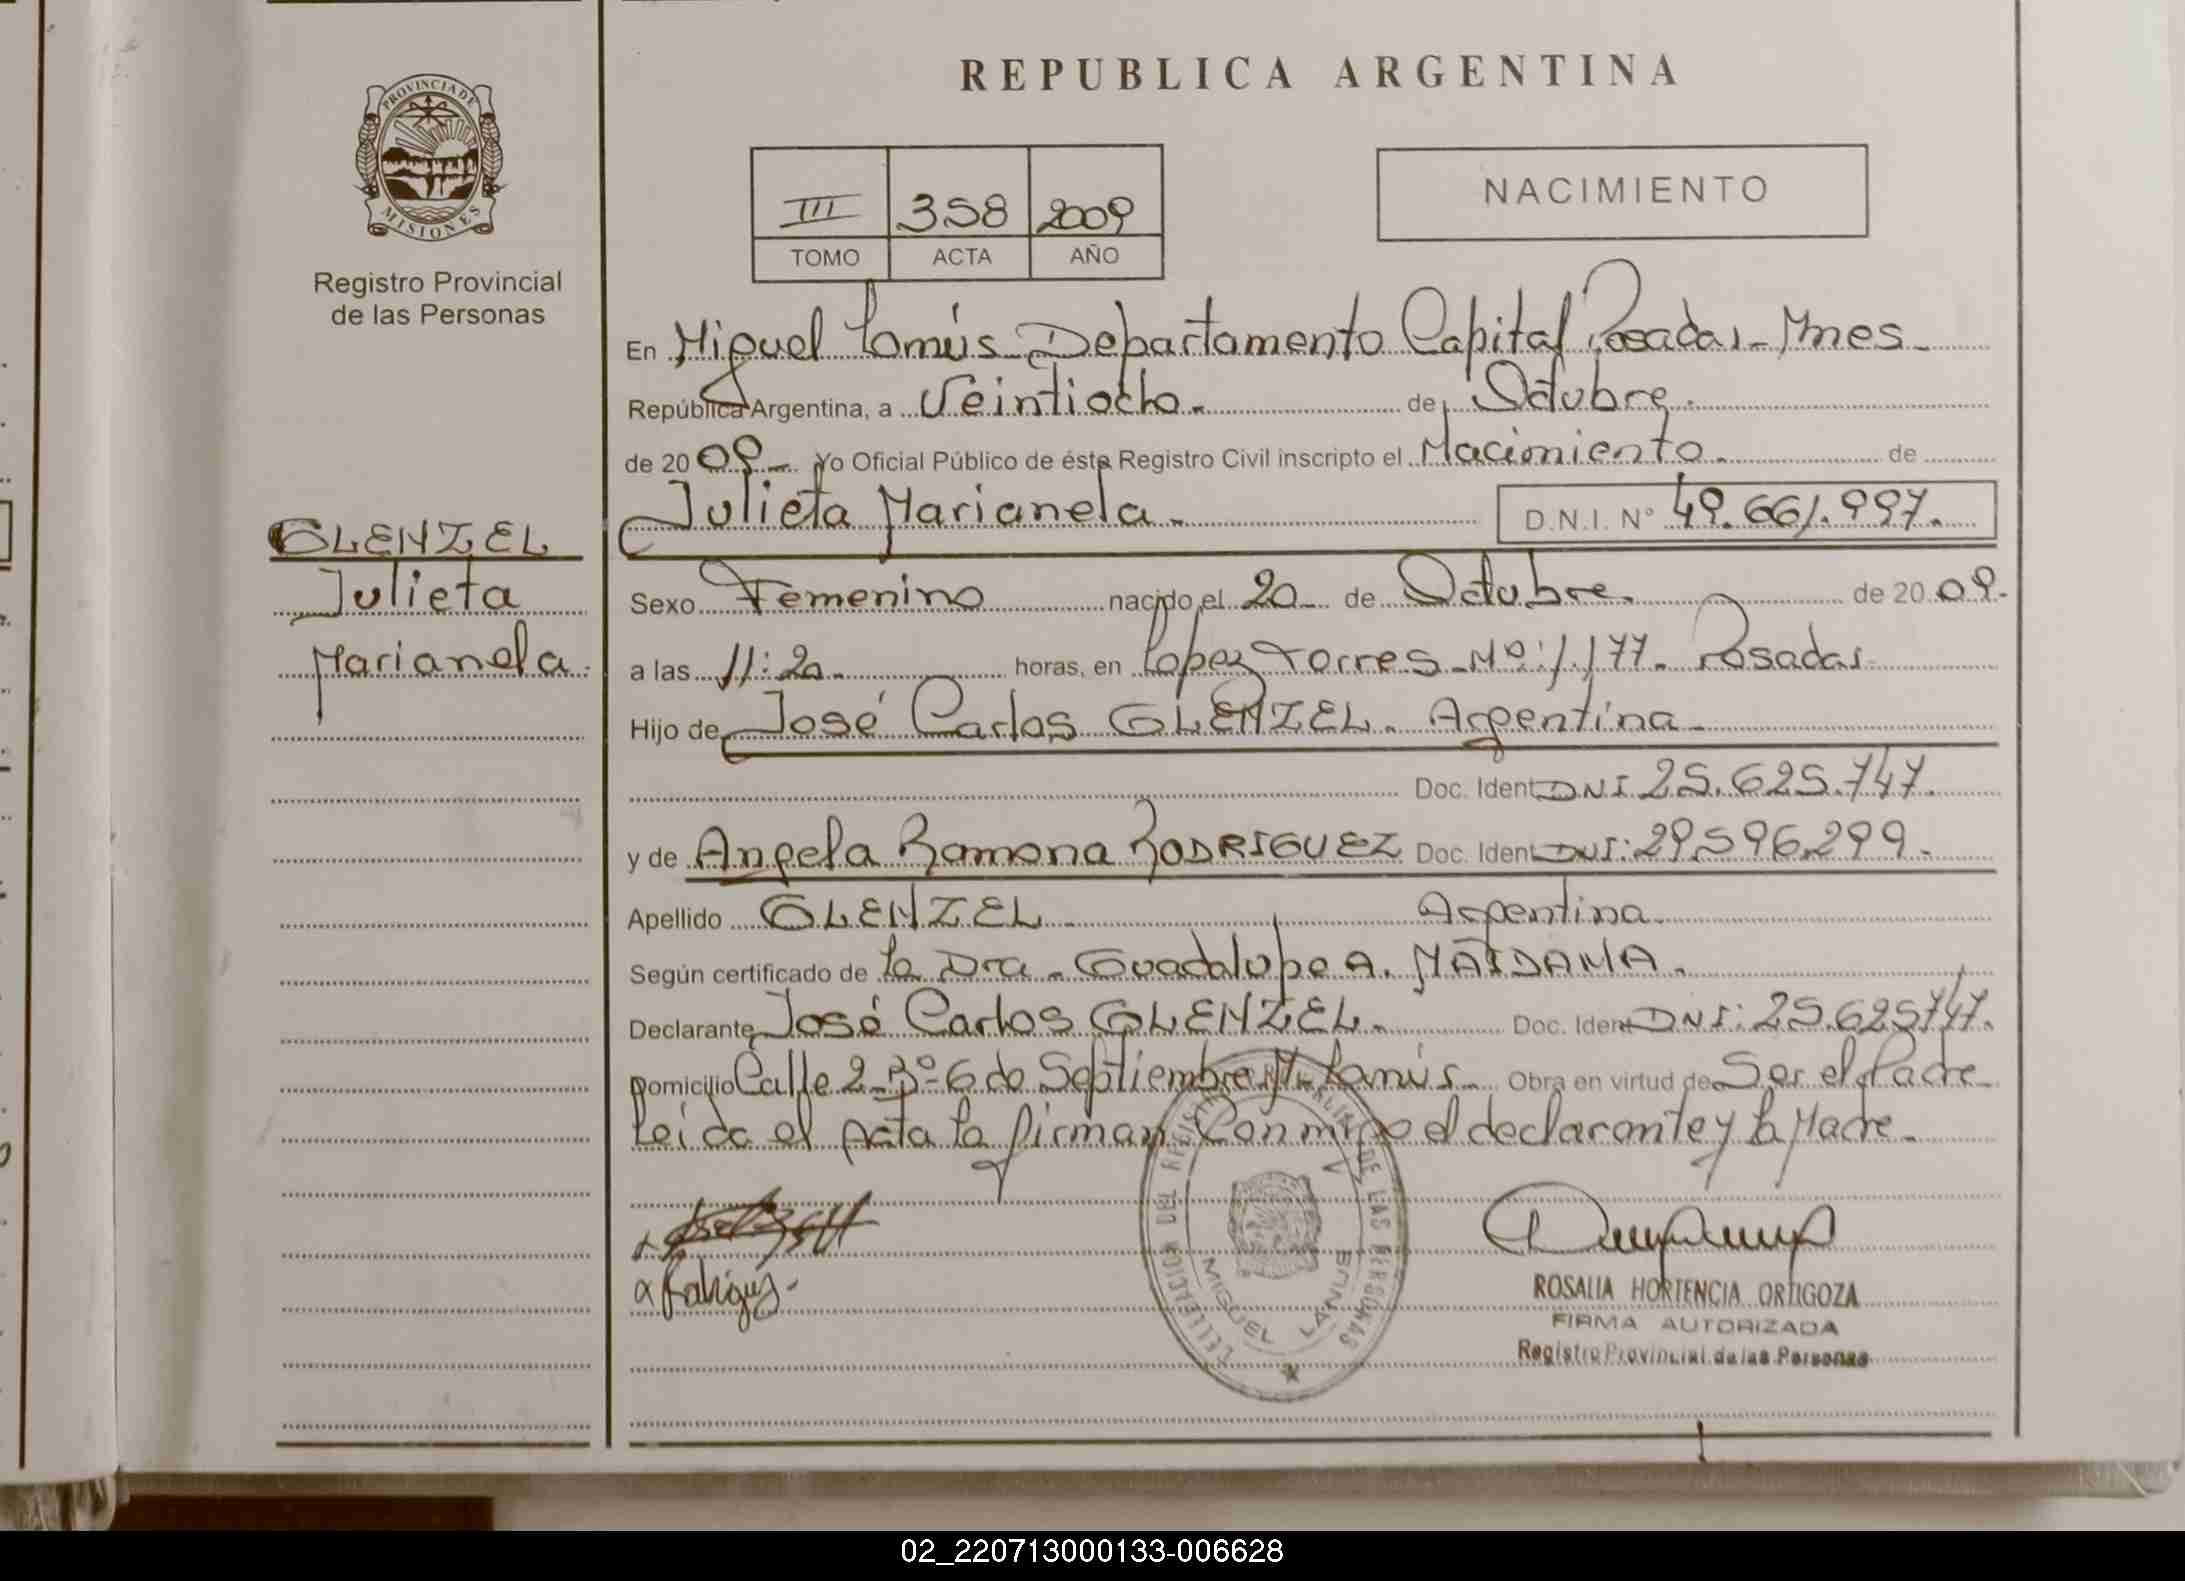 PROVINCIA DE
MISIONES
Registro Provincial
de las Personas
GLENZEL
Julieta
Marianela.
REPUBLICA ARGENTINA
III 358 2009
TOMO ACTA AÑO
NACIMIENTO
En Miguel Lanús Departamento Capital Posadas - Mnes -
República Argentina, a Veintiocho. de Octubre.
de 2009- Yo Oficial Público de éste Registro Civil inscripto el Nacimiento. de
Julieta Marianela. D.N.I. N° 49.661.997.
Sexo Femenino nacido el 20 de Octubre. de 2009.
a las 11:20 horas, en Lopez Torres - Nº: 1.177. Posadas
Hijo de José Carlos GLENZEL. Argentina
Doc. Ident DNI 25.625.747.
y de Angela Ramona RODRIGUEZ Doc. Ident DNI: 29.596.299.
Apellido GLENZEL Argentina.
Según certificado de la Dra. Guadalupe A. MAIDANA.
Declarante José Carlos GLENZEL. Doc. Ident DNI: 25.625747.
Domicilio Calle 2-Bº-6 de Septiembre M. Lanús. Obra en virtud de Ser el Padre
Leída el Acta la firman Conmigo el declarante y la Madre.
MIGUEL LANUS
ROSALIA HORTENCIA ORTIGOZA
FIRMA AUTORIZADA
Registro Provincial de las Personas
02_220713000133-006628